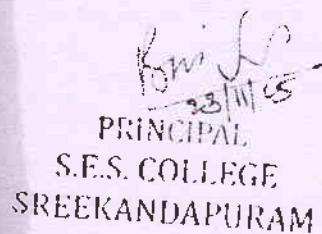 23/11/15
PRINCIPAL
S.E.S. COLLEGE
SREEKANDAPURAM